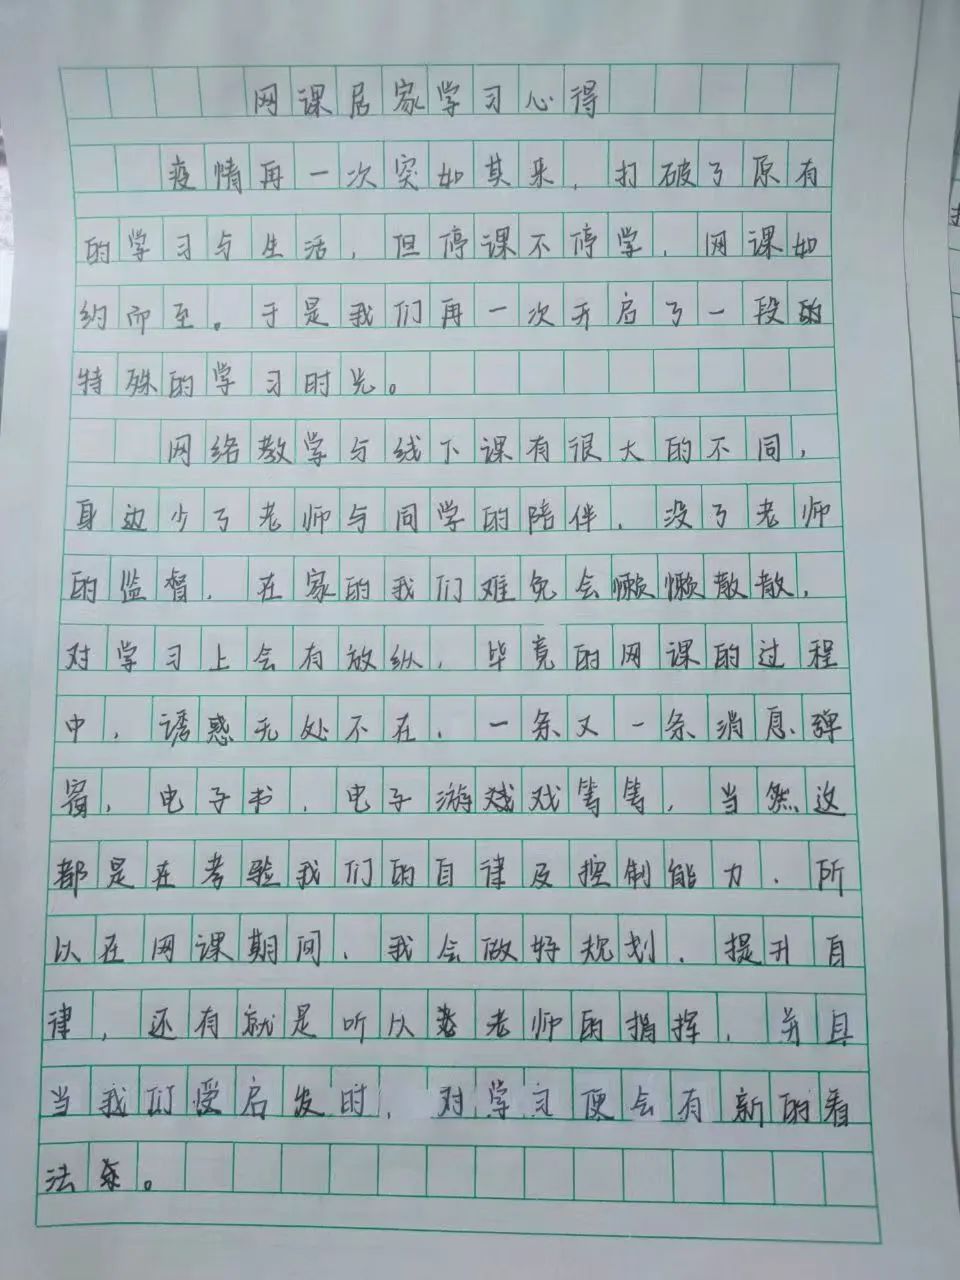 网课居家学习心得
疫情再一次突如其来，打破了原有
的学习与生活，但停课不停学，网课如
约而至。于是我们再一次开启了一段的
特殊的学习时光。
网络教学与线下课有很大的不同，
身边少了老师与同学的陪伴，没了老师
的监督，在家的我们难免会懒懒散散，
对学习上会有放纵，毕竟的网课的过程
中，诱惑无处不在，一条又一条消息弹
窗，电子书，电子游戏戏等等，当然这
都是在考验我们的自律及控制能力，所
以在网课期间，我会做好规划，提升自
律，还有就是听从老师的指挥，并且
当我们受启发时，对学习便会有新的看
法。